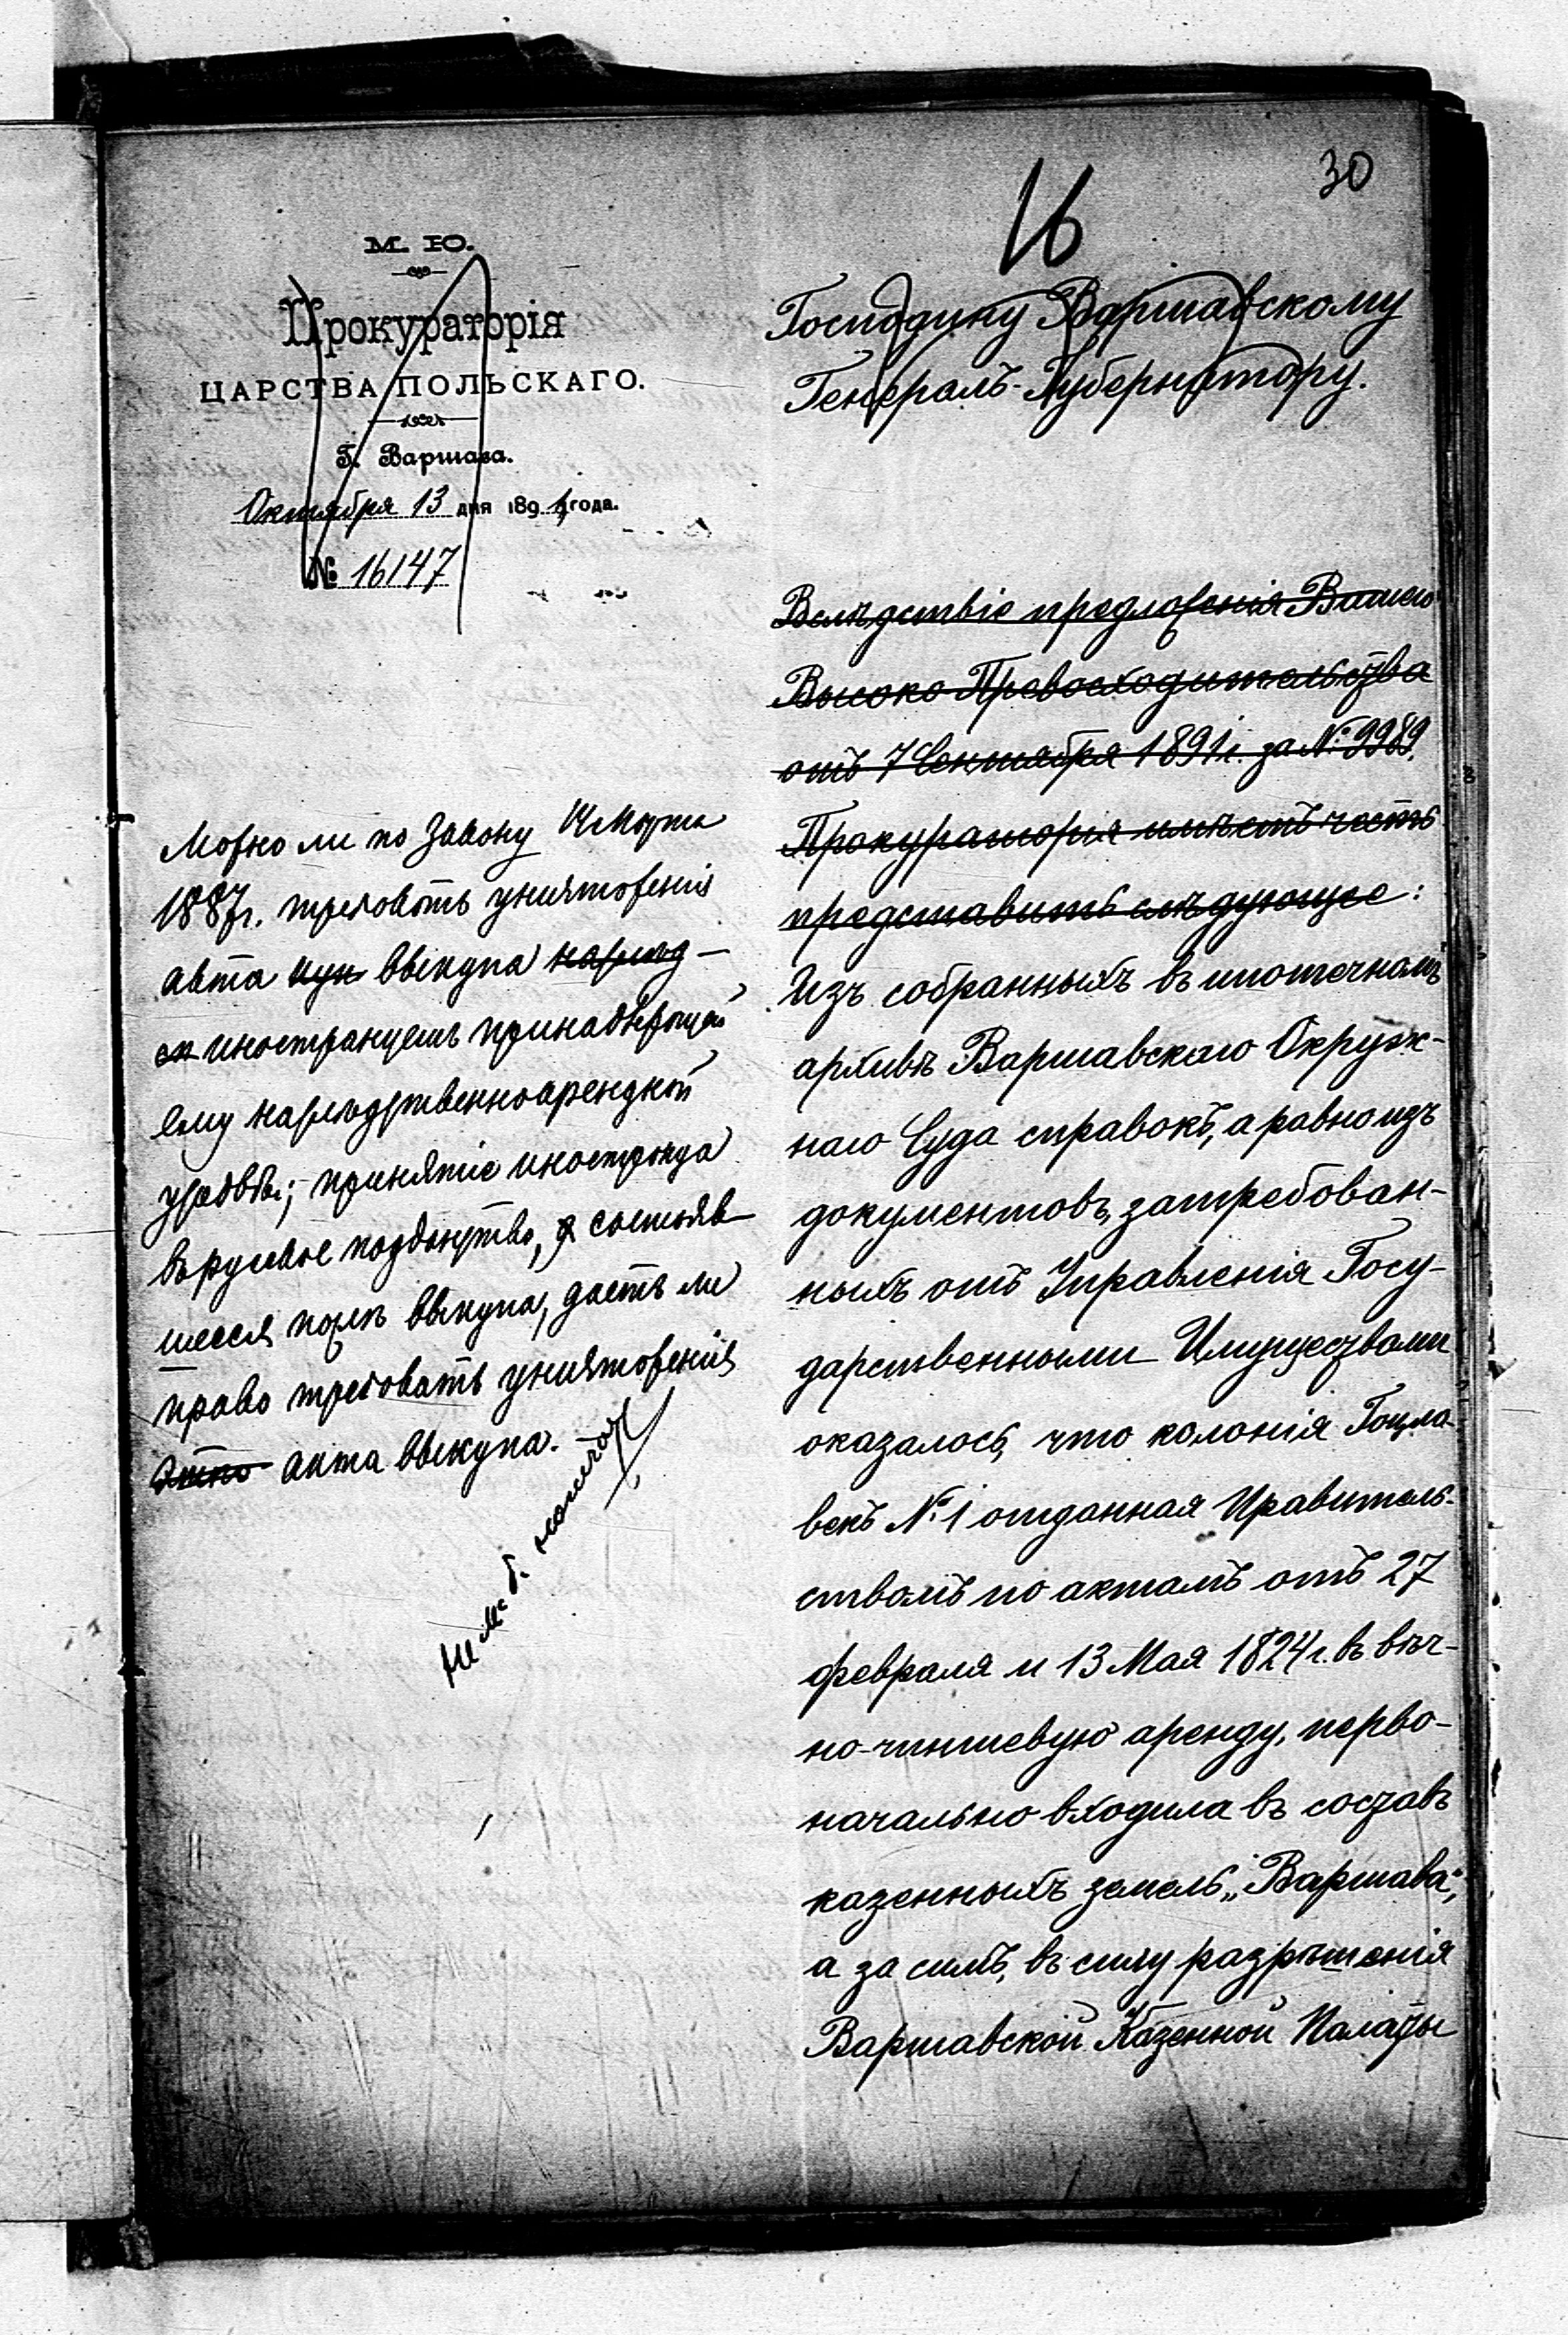 30
16
М. Ю.
Прокураторія
ЦАРСТВА ПОЛЬСКАГО.
Г. Варшава.
Октября 13 дня 1891 года.
№ 16147
Господину Варшавскому
Генералъ-Губернатору.
Вслѣдствіе предложенія Вашего
Высоко Превосходительства
отъ 7 Сентября 1891 г. за № 9989.
Прокураторія имѣетъ честь
представить слѣдующее:
Изъ собранныхъ въ ипотечномъ
архивѣ Варшавскаго Окруж-
наго Суда справокъ, а равно изъ
документовъ, затребован-
ныхъ отъ Управленія Госу-
дарственными Имуществами
оказалось, что колонія Гоцла-
векъ № 1 отданная Правитель-
ствомъ по актамъ отъ 27
февраля и 13 Мая 1824 г. въ вѣч-
но-чиншевую аренду, перво-
начально входила въ составъ
казенныхъ земель „Варшава“,
а за симъ, въ силу разрѣшенія
Варшавской Казенной Палаты
Можно ли по закону 14 Марта
1887 г. требовать уничтоженія
акта выкупа наслѣд-
иностранцемъ принадлежащей
ему наслѣдственно арендной
усадьбы; принятіе иностранца
въ русское подданство, состояв-
шееся послѣ выкупа, даетъ ли
право требовать уничтоженія
акта выкупа.